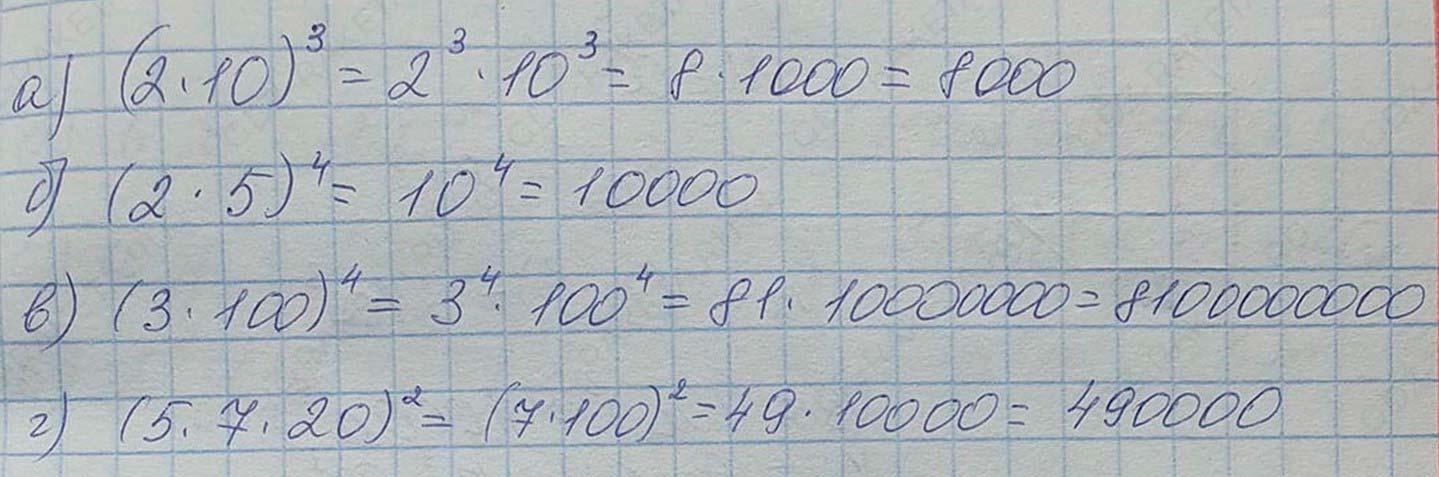 а) (2·10)³ = 2³·10³ = 8·1000 = 8000
б) (2·5)⁴ = 10⁴ = 10000
в) (3·100)⁴ = 3⁴·100⁴ = 81·10000000 = 8100000000
г) (5·7·20)² = (7·100)² = 49·10000 = 490000